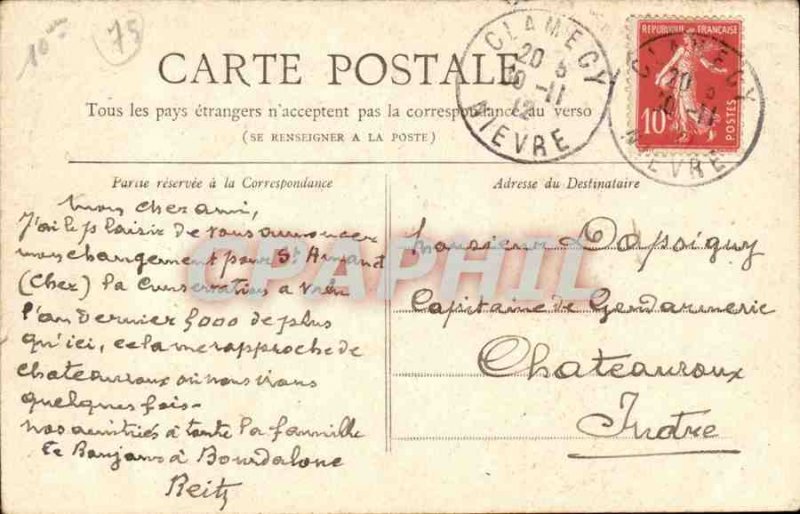 10
75
CARTE POSTALE
Tous les pays étrangers n'acceptent pas la correspondance au verso
(SE RENSEIGNER A LA POSTE)
CLAMECY
20 3
10-11
12
NIEVRE
REPUBLIQUE FRANÇAISE
10
POSTES
CLAMECY
20 3
10-11
NIEVRE
Partie réservée à la Correspondance
Mon cher ami,
J'ai le plaisir de vous annoncer
mon changement pour St Amand
(Cher) la Conservation a
l'an dernier 5000 de plus
qu'ici, cela me rapproche de
Chateauroux où nous irons
quelques fois-
nos amitiés à toute la famille
Le Bonjour à Bourdalone
Reitz
Adresse du Destinataire
Monsieur Dapoigny
Capitaine de Gendarmerie
Chateauroux
Indre
CPAPHIL